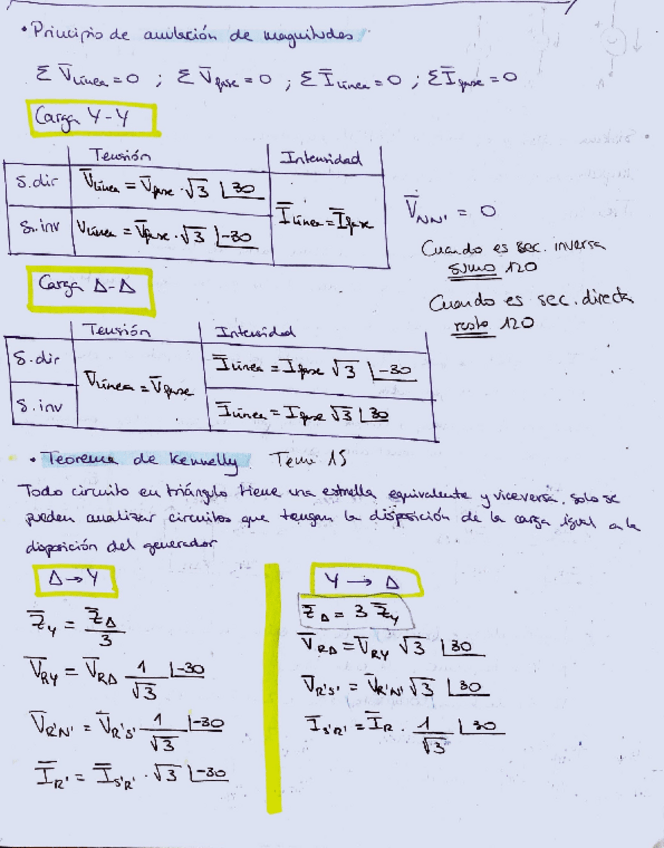 • Principio de anulación de magnitudes
Σ V̅línea = 0 ; Σ V̅fase = 0 ; Σ I̅línea = 0 ; Σ I̅fase = 0
Carga Y-Y
Tensión Intensidad
S.dir V̅línea = V̅fase · √3 |30
I̅línea = I̅fase
S.inv V̅línea = V̅fase · √3 |-30
V̅NN' = 0
Cuando es sec. inversa
sumo 120
Cuando es sec. directa
resto 120
Carga Δ-Δ
Tensión Intensidad
S.dir I̅línea = I̅fase √3 |-30
V̅línea = V̅fase
S.inv I̅línea = I̅fase √3 |30
• Teorema de Kennelly. Tema 15
Todo circuito en triángulo tiene una estrella equivalente y viceversa, solo se
pueden analizar circuitos que tengan la disposición de la carga igual a la
disposición del generador
Δ → Y
Z̅Y = Z̅Δ / 3
V̅RY = V̅RΔ 1/√3 |-30
V̅R'N' = V̅R'S' 1/√3 |-30
I̅R' = I̅S'R' · √3 |-30
Y → Δ
Z̅Δ = 3 Z̅Y
V̅RΔ = V̅RY √3 |30
V̅R'S' = V̅R'N' √3 |30
I̅S'R' = I̅R · 1/√3 |30